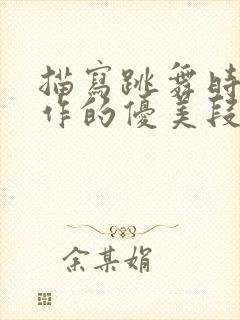 描寫跳舞時
作的優美段
余某娟